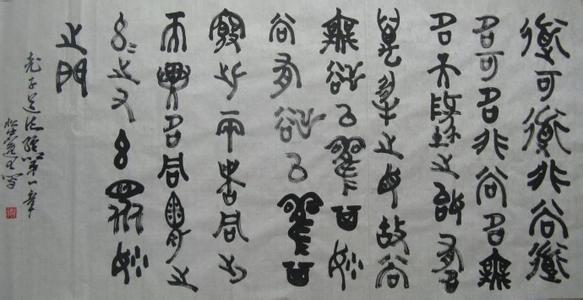 道可道非常道
名可名非常名無
名天地之始有名
萬物之母故常
無欲以觀其妙
常有欲以觀其
徼此兩者同出
而異名同謂之
玄〻之又玄眾妙
之門
老子道德經第一章